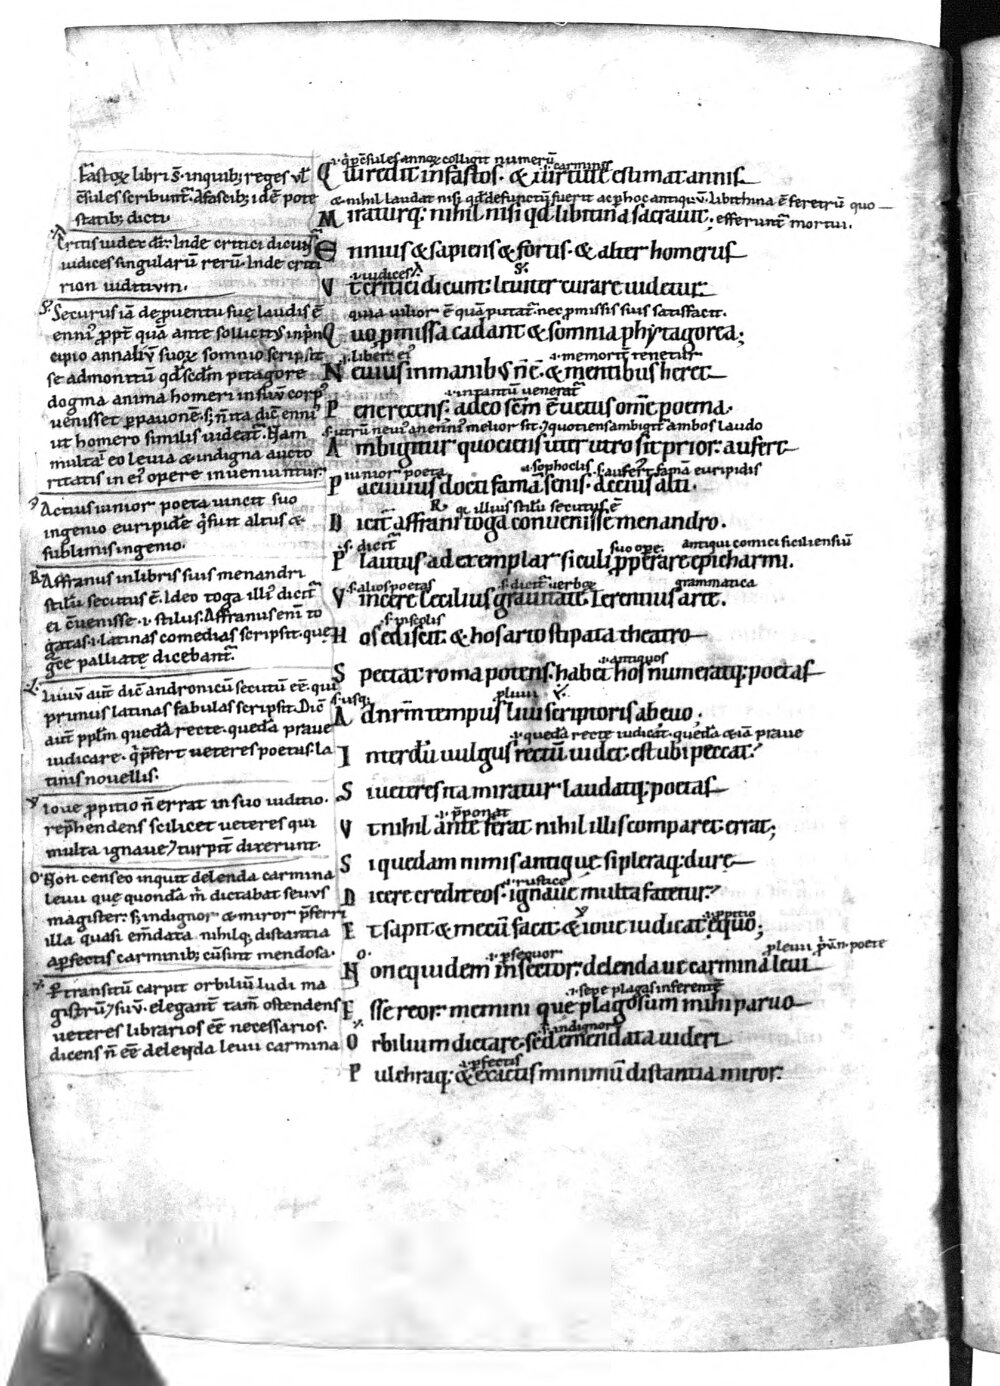 Fastoꝝ libri s̄. inquib; reges vl̄
c̄sules scribunt᷑. Afascib; idē pote
statib; dicti
Critis iudex dr̄. Inde critici dicunt᷑
iudices singularū rerū. Inde criti
rion iuditium.
Securus iā de ꝓuentu suę laudis ē
enni᷒ ꝓpt̄ quā ante sollicit᷒ inprin
cipio annaliū suoꝝ somnio scripsit
se admonitū qd̄ scdm̄ pitagore
dogma anima homeri insuū corp᷒
uenisset ꝑpauonē. s; n̄ ita dic̄ enni᷒
ut homero similis uideat᷑. Nam
multa eo leuia & indigna aucto
ritatis in ei᷒ opere inueniuntur.
Actius iunior poeta uincit suo
ingenio euripidē q̇ fuit altus &
sublimis ingenio.
Affranus inlibris suis menandri
stilū secutus ē. Ideo toga illi᷒ dicit᷑
ei c̄uenisse .i. stilus. Affranus eni᷒ to
gatas .i. latinas comedias scripsit. que
gręce palliatę dicebant᷑.
Liuiū aut̄ dic̄ andronicū secutū eē. qui
primus latinas fabulas scripsit. Dic̄
aut̄ pplm̄ quedā recte. quedā praue
iudicare. q̇ p̄fert ueteres poetas la
tinis nouellis.
Ioue ꝓpitio n̄ errat in suo iuditio.
rep̄hendens scilicet ueteres qui
multa ignaue ⁊ turpit̄ dixerunt.
Non censeo inquit delenda carmina
leuii quę quondā m̄ dictabat seuus
magister. s; indignor & miror p̄ferri
illa quasi em̄data nihilq; distantia
aꝑfectis carminib; cū sint mendosa.
Ꝑ transitū carpit orbiliū ludi ma
gistrū ⁊ suū. elegant̄ tam̄ ostendens
ueteres librarios eē necessarios.
dicens n̄ eē delenda leuii carmina
.i. q̇ p̄c̄sules annoꝝ colligit numerū
carminis
Qui redit in fastos. & uirtutē estimat annis
& nihil laudat nisi qd̄ defunctū fuerit ac ꝑhoc antiquū. libithina ē feretrū quo
Miraturq; nihil nisi qd̄ libitina sacrauit; efferunt᷑ mortui.
Ennius & sapiens & fortis. & alter homerus
.i. iudices
Vt critici dicunt: leuiter curare uidetur:
quia uilior ē quā putat᷑. nec ꝓmissis suis satisfacit.
Quo ꝓmissa cadant & somnia phytagorea;
.i. liber ei᷒ .i. memorit̄ tenetur
Neuius in manib᷒ n̄ ē. & mentibus heret
.i. intantū uenerat᷑
Pene recens: adeo scm̄ ē uetus om̄e poema.
.s. utrū neui᷒ an enni᷒ melior sit. ⁊ quotiens ambigit᷑ ambos laudo
Ambigitur quotiens uter utro sit prior. aufert
iunior poeta .i. sophoclis .s. aufert famā euripidis
Pacuuius docti famā senis. Accius alti.
q illius stilū secutus ē
Dicit᷑ affrani toga conuenisse menandro.
.s. dicit᷑ suo ope. antiqui comici siciliensiū
Plautus ad exemplar siculi ꝓperare epicharmi.
.s. alios poetas .s. dicit᷑ uerboꝝ grammatica
Vincere cecilius grauitate. Terentius arte.
.s. inseptis
Hos ediscit. & hos arto stipata theatro
.i. antiquos
Spectat roma potens. habet hos numeratq; poetas
.s. usq; pleuii
Ad nr̄m tempus liui scriptoris ab euo.
.i. quedā recte iudicat. quedā &iā praue
Interdū uulgus rectū uidet. est ubi peccat.
Si ueteres ita miratur laudatq; poetas
.i. p̄ponat
Vt nihil ante ferat nihil illis comparet: errat;
Si quedam nimis antique. si pleraq; dure
.i. rustice
Dicere credit eos. ignaue multa fatetur:
.i. ꝓpitio
Et sapit. & mecū facit & ioue iudicat equo;
.i. ꝑsequor pleuii poete
Non equidem insector: delendaue carmina leui
.i. sepe plagas inferentē
Esse reor: memini que plagosum mihi paruo
.s. indignor
Orbilium dictare. sed emendata uideri
.i. ꝑfectis
Pulchraq; & exactis minimū distantia miror: